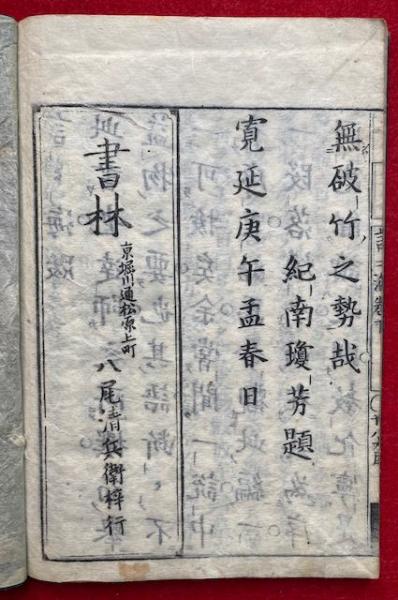 無破竹之勢哉
紀南瓊芳題
寛延庚午孟春日
書林
京堀川通松原上町
八尾清兵衛梓行